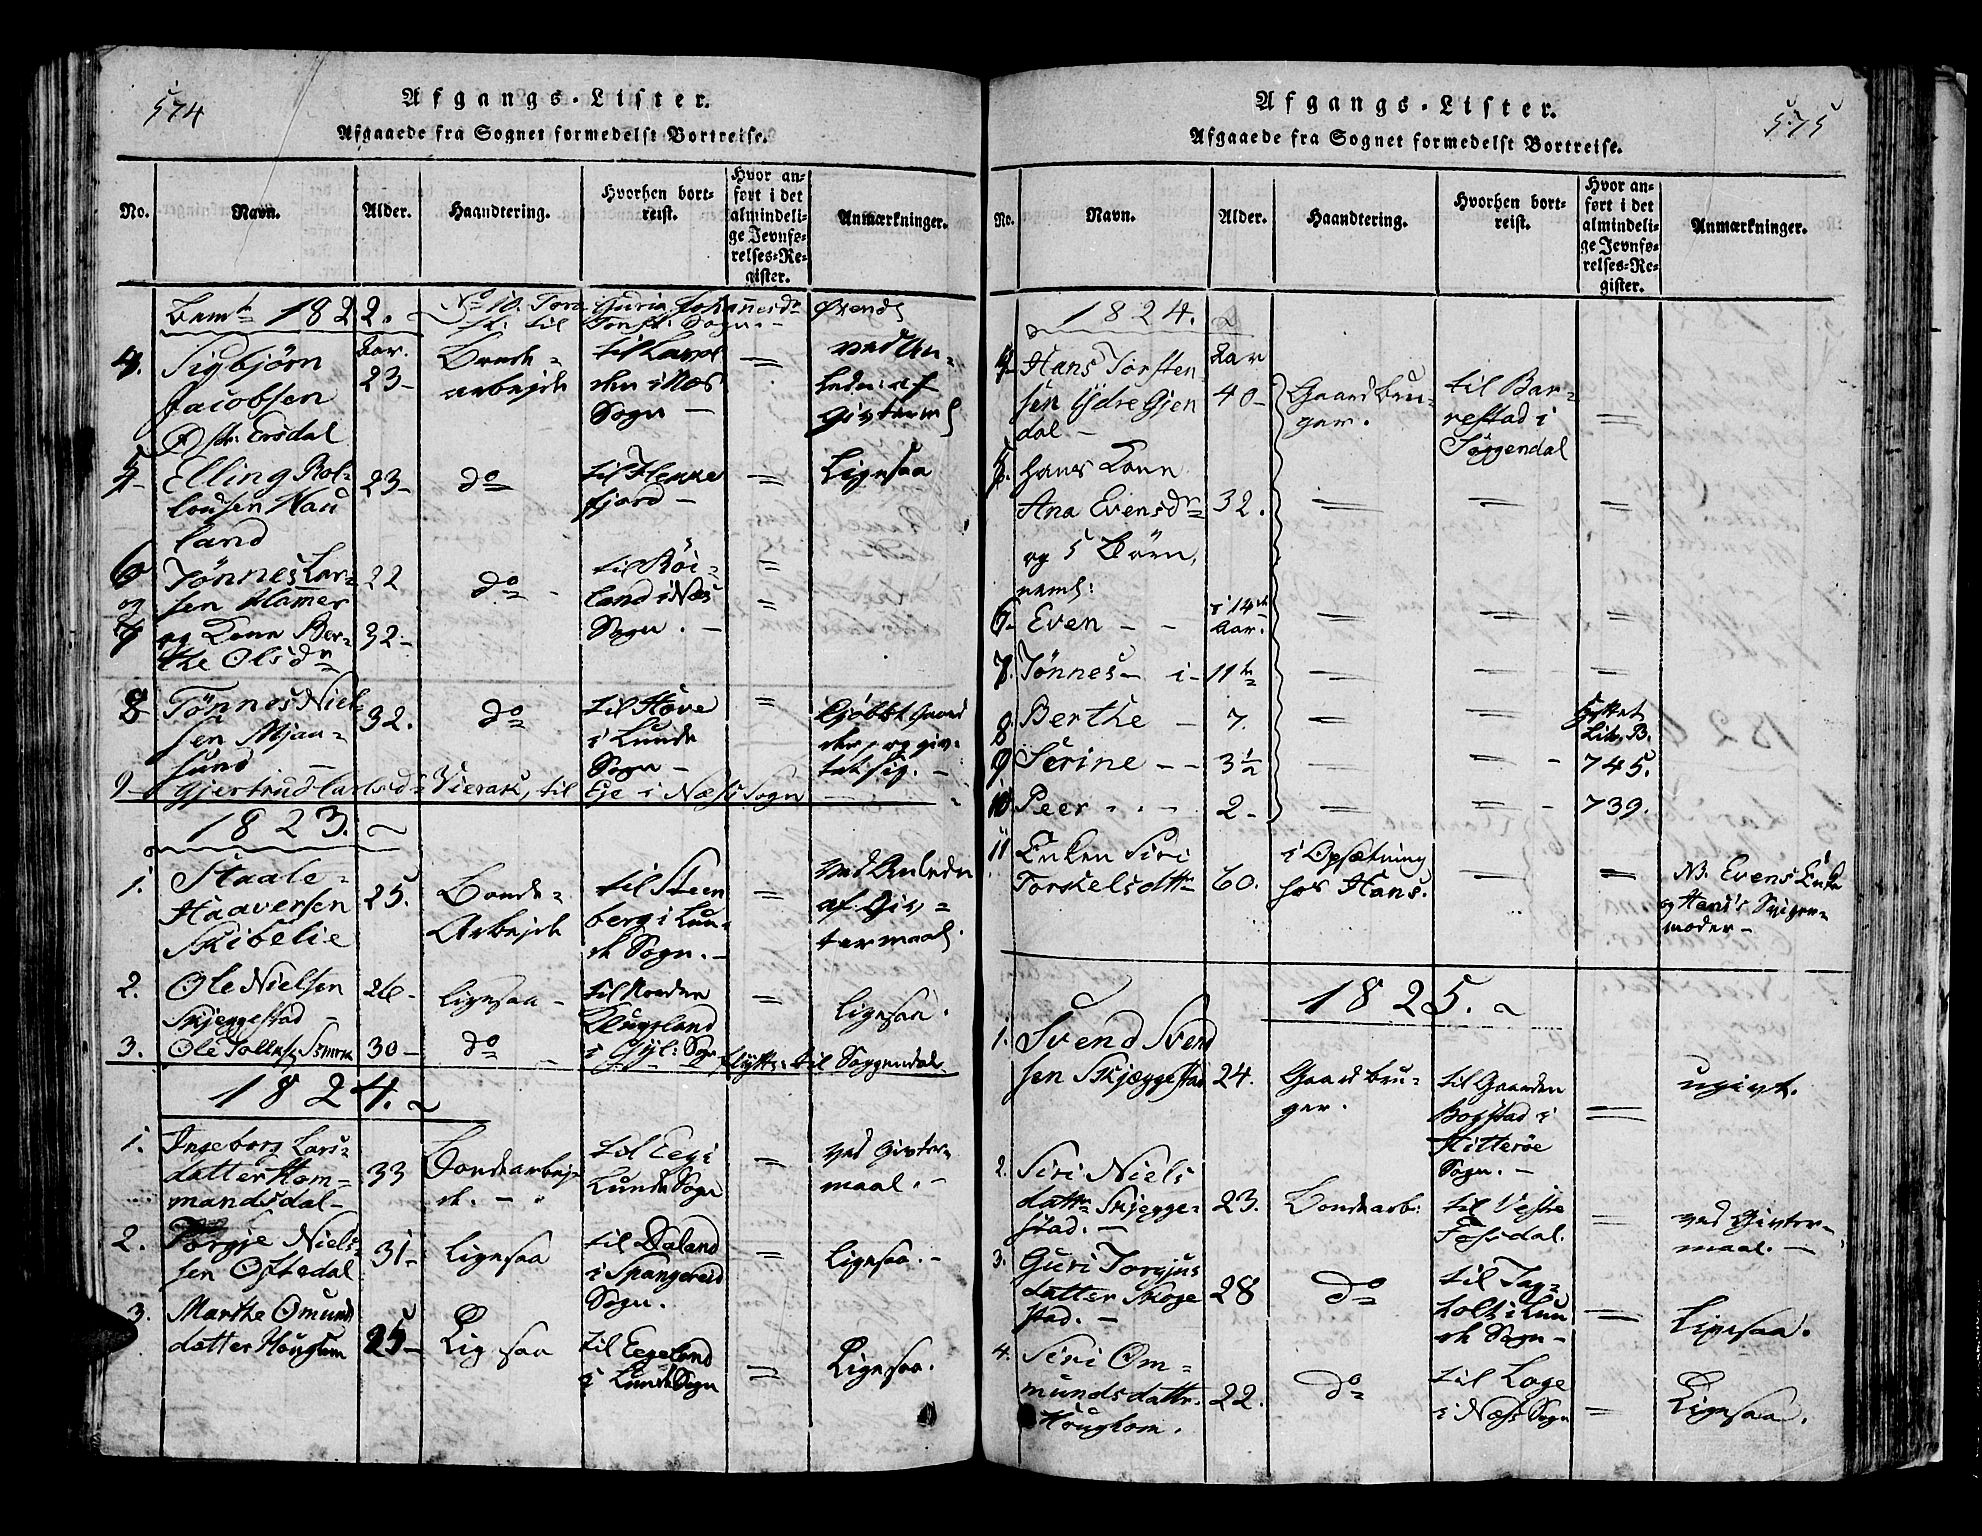 574
Afgangs-Lister.
Afgaaede fra Sognet formedelst Bortreise.
No.
Navn.
Alder.
Haandtering.
Hvorhen bort-
reist.
Hvor an-
ført i det
almindeli-
ge Jevnfø-
relses-Re-
gister.
Anmærkninger.
1822.
No 10. Tora Guria Johannesdr
til Sogn.
4.
Sigbjørn
Jacobsen
Ersdal
Aar.
23-
Bonde-
arbejde
i Næs
Sogn -
=
ved An-
ledn: af
Givterm
5
Elling Rol-
lousen Hau
land
23-
do
til Flekke
fjord -
=
Ligesaa
6
og
7
Tønnes Lar-
sen Hamer
og Kone Ber-
the Olsdr
22
32-
do -
til Röi-
land i Næs
Sogn. -
=
=
8
Tønnes Niel-
sen Mjau-
sund -
32.
do
til Hove
i Lunde
Sogn -
=
kjøbt Gaard
der, og giv-
tet sig. -
9-
Gjertrud Carlsdr
til Eje i Næss Sogn
1823.
1.
Staale-
Haaversen
Skibelie
25.
Bonde-
Arbejde
til Steen
berg i Lun-
de Sogn. -
=
ved Anledn
af Giv-
termaal.
2.
Ole Nielsen
Skjeggestad -
26-
ligesaa -
til Gaarden
Augsland
i Gyl: Sogn
=
ligesaa.
3.
Ole Tollefs:
30-
do
flytt: til Soggendal
1824.
1.
Ingeborg Lars-
datter Hom-
mandsdal-
33
Bondearbej-
de. -
til Eeg i
Lunde Sogn
=
ved Givter-
maal. -
2.
Torgje Niels-
sen Oftedal
31-
ligesaa
til Daland
i Spangereid
Sogn.
=
ligesaa. -
3.
Marthe Omunds
datter Houglum
25-
Ligesaa
til Eegeland
i Lunde Sogn
=
Ligesaa.
575
Afgangs-Lister.
Afgaaede fra Sognet formedelst Bortreise.
No.
Navn.
Alder.
Haandtering.
Hvorhen bort-
reist.
Hvor an-
ført i det
almindeli-
ge Jevnfø-
relses-Re-
gister.
Anmærkninger.
1824.
4
Hans Torsten
sen Ydre Gjen
dal -
Aar
40-
Gaardbru-
ger.
til Bar-
restad i
Söggendal
=
5.
hans Kone
Ana Evensdr
og 5 Börn,
neml:
32.
=
=
=
6.
Even - -
i 14de
Aar.
=
=
=
7.
Tønnes - i -
11te
=
=
=
8.
Berthe -
7.
=
=
flyttet
Litr. B.
9
Serine - -
3½
=
=
745.
10
Peer - - -
2-
=
=
739.
11
Enken Siri
Torkelsdttr
60.
i Opsætning
hos Hans.
=
=
NB. Evens Enke
og Hans's Sviger-
moder -
1825.
1.
Svend Svend
sen Skjæggestad
24.
Gaardbru-
ger.
til Gaarden
Bogstad i
Hitterøe
Sogn. -
=
ugivt.
2.
Siri Niels
dattr Skjegge-
stad. -
23.
Bondearb:
til Vestre
Fossdal.
=
ved Givter-
maal. -
3.
Guri Torgjus
datter Skoge
stad. -
28
do
til Tag-
holt i Lun
de Sogn -
=
Ligesaa.
4.
Siri Om-
mundsdattr.
Houglom.
22.
do
til Loge
i Næss Sogn
=
Ligesaa.